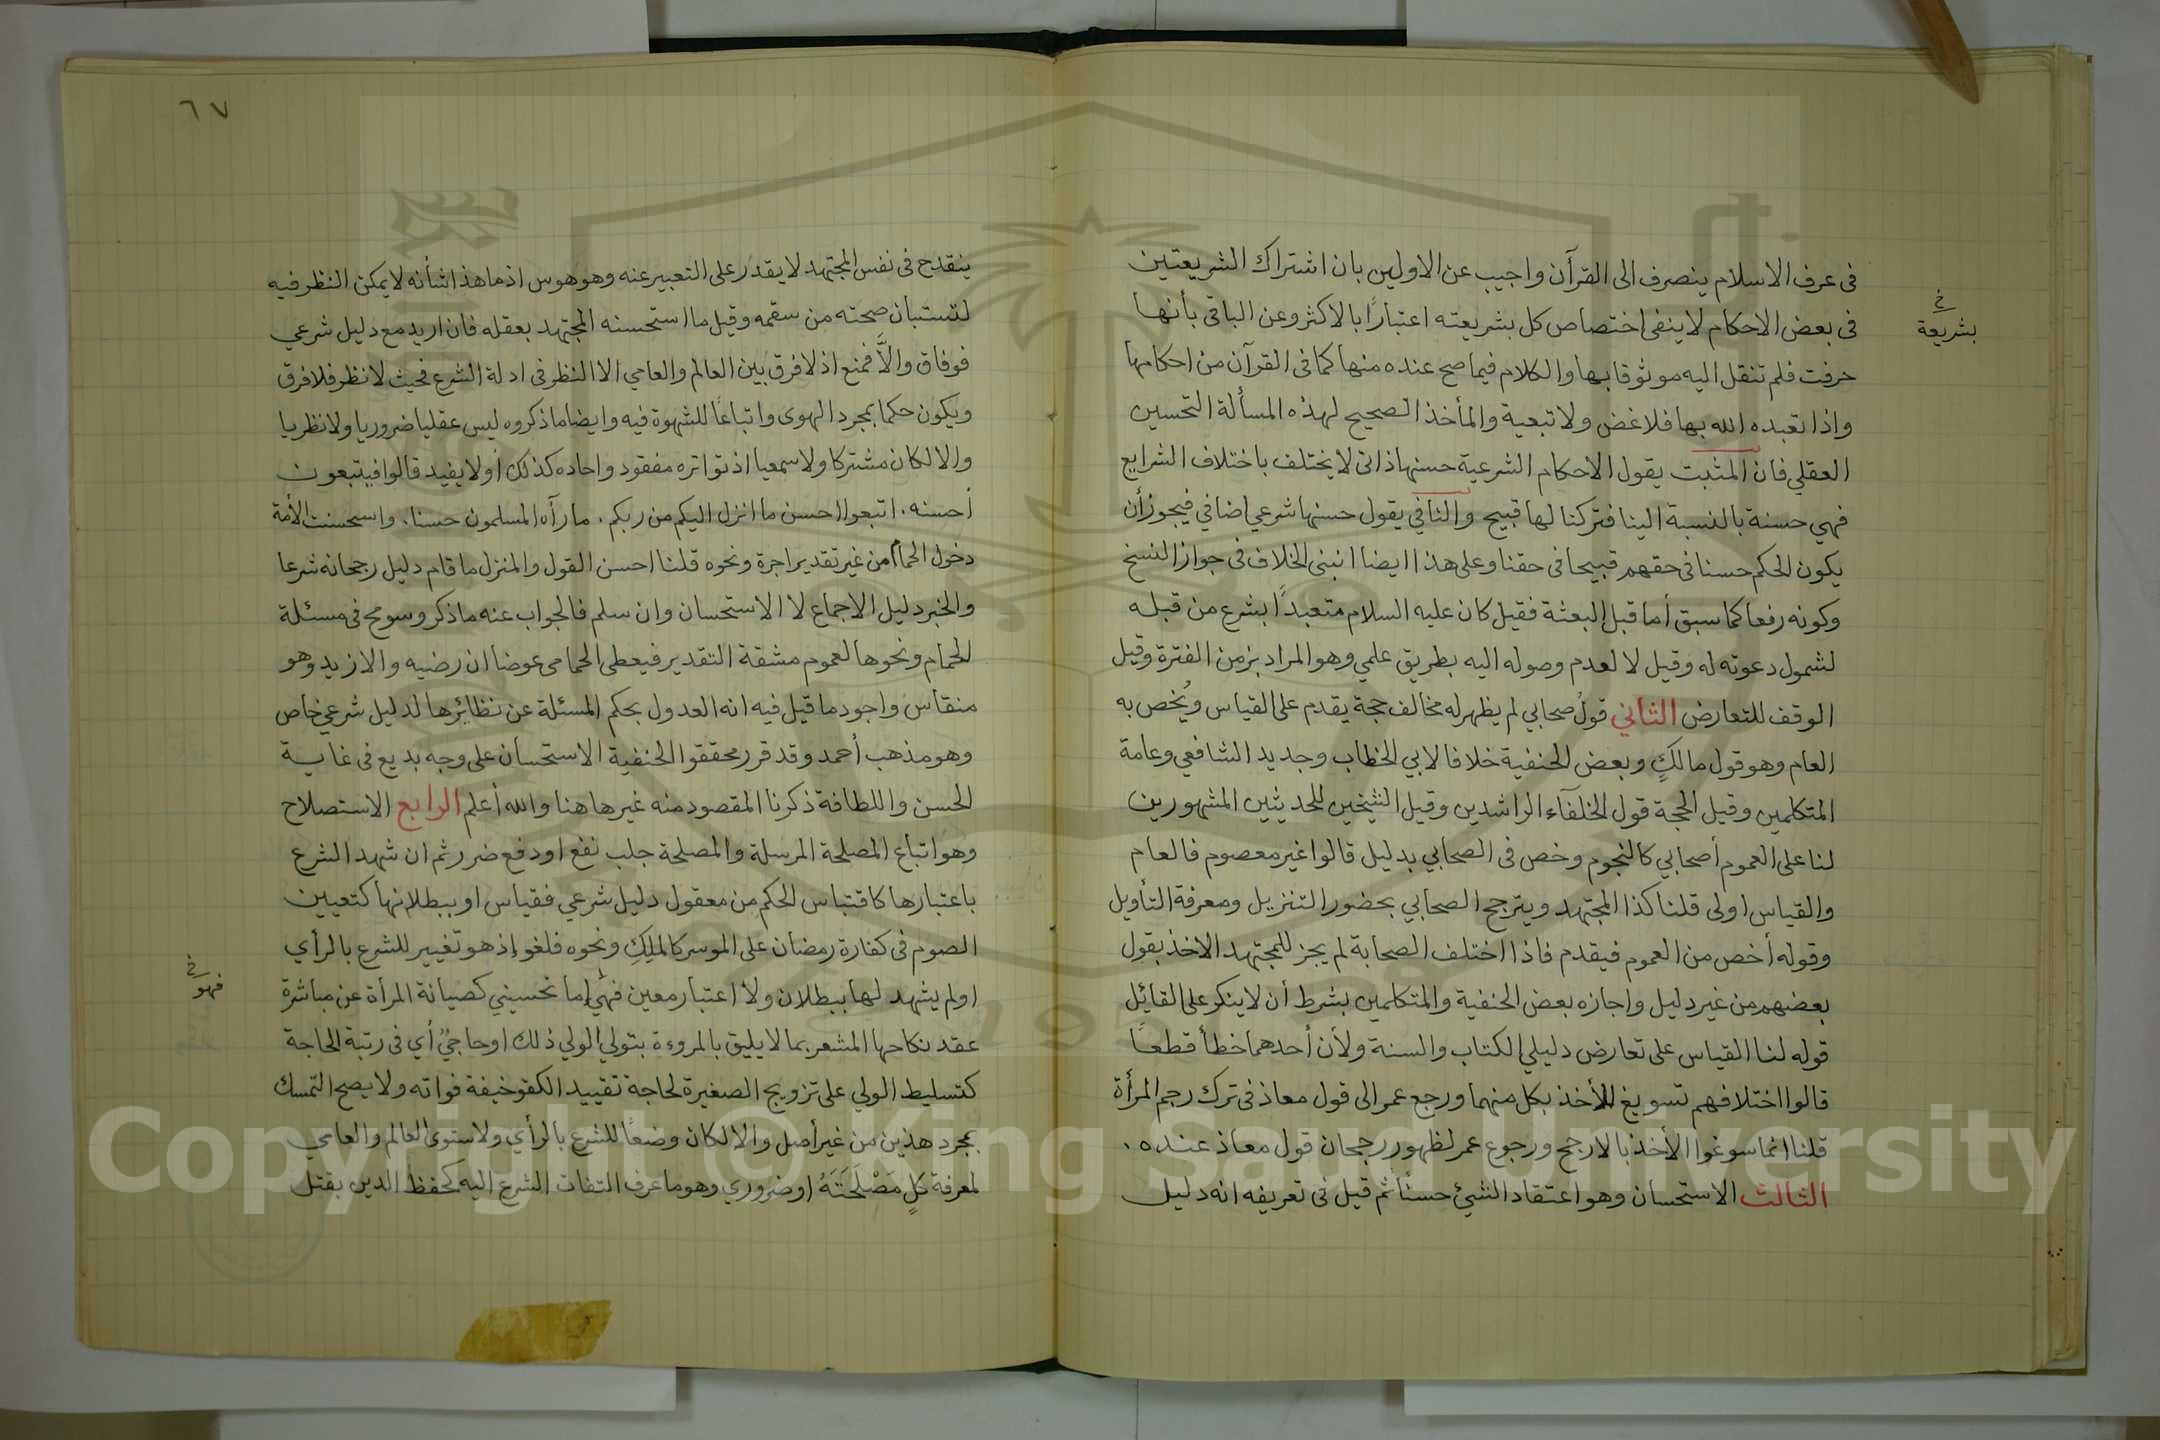 في عرف الاسلام ينصرف الى القرآن واجيب عن الاولين بان اشتراك الشريعتين
في بعض الاحكام لاينفى اختصاص كل بشريعته اعتبارًا بالاكثر وعن الباقى بأنها
حرفت فلم تنقل اليه موثوقا بها والكلام فيما صح عنده منها كما فى القرآن من احكامها
واذا تعبده الله بها فلا غض ولا تبعية والمأخذ الصحيح لهذه المسألة التحسين
العقلي فان المثبت يقول الاحكام الشرعية حسنها ذاتى لا يختلف باختلاف الشرايع
فهي حسنة بالنسبة الينا فتركنا لها قبيح والنافي يقول حسنها شرعي اضافي فيجوز أن
يكون الحكم حسنا فى حقهم قبيحا فى حقنا وعلى هذا ايضا انبنى الخلاف فى جواز النسخ
وكونه رفعا كما سبق أما قبل البعثة فقيل كان عليه السلام متعبدًا بشرع من قبله
لشمول دعوته له وقيل لا لعدم وصوله اليه بطريق علمي وهو المراد بزمن الفترة وقيل
الوقف للتعارض الثاني قولُ صحابي لم يظهر له مخالف حجة يقدم على القياس ويُخص به
العام وهو قول مالكٍ وبعض الحنفية خلافا لابي الخطاب وجديد الشافعي وعامة
المتكلمين وقيل الحجة قول الخلفآء الراشدين وقيل الشيخين للحديثين المشهورين
لنا على العموم أصحابي كالنجوم وخص فى الصحابي بدليل قالوا غير معصوم فالعام
والقياس اولى قلنا كذا المجتهد ويترجح الصحابي بحضور التنزيل ومعرفة التأويل
وقوله أخص من العموم فيقدم فاذا اختلف الصحابة لم يجز للمجتهد الاخذ بقول
بعضهم من غير دليل واجازه بعض الحنفية والمتكلمين بشرط أن لا ينكر على القائل
قوله لنا القياس على تعارض دليلي الكتاب والسنة ولأن أحدهما خطأ قطعًا
قالوا اختلافهم تسويغ للأخذ بكل منهما ورجع عمر الى قول معاذ فى ترك رجم المرأة
قلنا انما سوغوا الأخذ بالارجح ورجوع عمر لظهور رجحان قول معاذ عنده .
الثالث الاستحسان وهو اعتقاد الشيئ حسنًا ثم قيل فى تعريفه انه دليل
خ
بشريعة
٦٧
ينقدح فى نفس المجتهد لا يقدر على التعبير عنه وهو هوس اذ ما هذا شأنه لا يمكن النظر فيه
لتستبان صحته من سقمه وقيل ما استحسنه المجتهد بعقله فان اريد مع دليل شرعي
فوفاق والاَّ فمنع اذ لا فرق بين العالم والعامي الا النظر فى ادلة الشرع فحيث لا نظر فلا فرق
ويكون حكما بمجرد الهوى واتباعًا للشهوة فيه وايضا ما ذكروه ليس عقليا ضروريا ولا نظريا
والا لكان مشتركا ولا سمعيا اذ تواتره مفقود واحاده كذلك أو لا يفيد قالوا فيتبعون
أحسنه . اتبعوا احسن ما انزل اليكم من ربكم . ما رآه المسلمون حسنا . واستحسنت الأمة
دخول الحمام من غير تقدير اجرة ونحوه قلنا احسن القول والمنزل ما قام دليل رجحانه شرعا
والخبر دليل الاجماع لا الاستحسان وان سلم فالجواب عنه ما ذكر وسومح فى مسئلة
الحمام ونحوها لعموم مشقة التقدير فيعطى الحمامى عوضا ان رضيه والا زيد وهو
منقاس واجود ما قيل فيه انه العدول بحكم المسئلة عن نظائرها لدليل شرعي خاص
وهو مذهب أحمد وقد قرر محققوا الحنفية الاستحسان على وجه بديع فى غاية
الحسن واللطافة ذكرنا المقصود منه غيرها هنا والله أعلم الرابع الاستصلاح
وهو اتباع المصلحة المرسلة والمصلحة جلب نفع او دفع ضرر ثم ان شهد الشرع
باعتبارها كاقتباس الحكم من معقول دليل شرعي فقياس او ببطلانها كتعيين
الصوم فى كفارة رمضان على الموسر كالملِكِ ونحوه فلغو إذ هو تغيير للشرع بالرأي
او لم يشهد لها ببطلان ولا اعتبار معين فهي إما تحسيني كصيانة المرأة عن مباشرة
عقد نكاحها المشعر بما لا يليق بالمروءة بتولي الولي ذلك او حاجيٌ أي فى رتبة الحاجة
كتسليط الولي على تزويج الصغيرة لحاجة تقييد الكفو خيفة فواته ولا يصح التمسك
بمجرد هذين من غير أصل والا لكان وضعًا للشرع بالرأي ولاستوى العالم والعامي
لمعرفة كلٍ مَصْلَحَتَهُ او ضروري وهو ما عرف التفات الشرع اليه كحفظ الدين بقتل
خ
فهو
Copyright © King Saud University